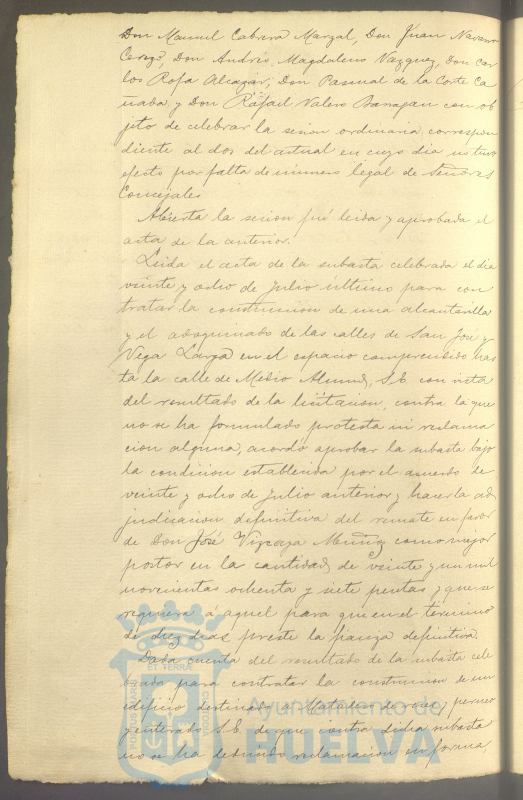 Don Manuel Cabrera Marzal, Don Juan Navarro
Cerezo, Don Andrés Magdaleno Vazquez, Don Car
los Rofa Alcazar, Don Pascual de la Corte Ca
ñada y Don Rafael Valero Barragan con ob
jeto de celebrar la sesion ordinaria correspon
diente al dos del actual en cuyo dia no tuvo
efecto por falta de número legal de Señores
Concejales
Abierta la sesion fué leida y aprobada el
acta de la anterior.
Leida el acta de la subasta celebrada el dia
veinte y ocho de Julio ultimo para con
tratar la construccion de una alcantarilla
y el adoquinado de las calles de San José y
Vega Larga en el espacio comprendido has
ta la calle de Medio Almud, S.E. con vista
del resultado de la licitacion, contra la que
no se ha formulado protesta ni reclama
cion alguna, acordó aprobar la subasta bajo
la condicion establecida por el acuerdo de
veinte y ocho de Julio anterior y hacer la ad
judicacion definitiva del remate en favor
de Don José Vizcaya Muñoz como mejor
postor en la cantidad de veinte y un mil
novecientas ochenta y siete pesetas y que se
requiera a aquel para que en el término
de diez dias preste la fianza definitiva.
Dada cuenta del resultado de la subasta cele
brada para contratar la construccion de un
edificio destinado a Matadero de reses,
y enterado S.E. de que contra dicha subasta
no se ha deducido reclamacion en forma,
PORTUS MARIS
ET TERRÆ
CUSTODIA
Ayuntamiento de
HUELVA